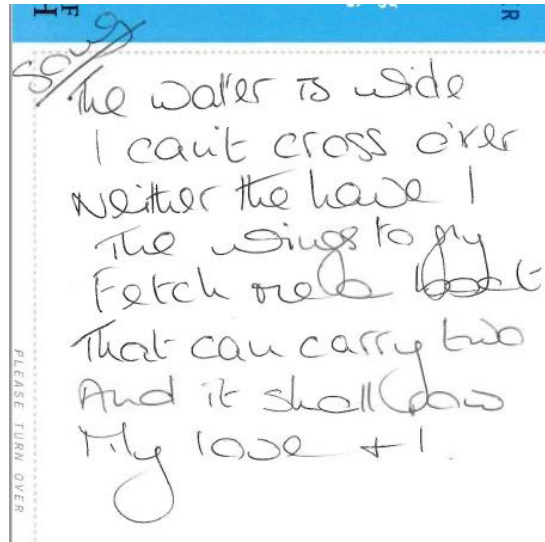 Song
The water is wide
I can't cross o'er
Neither the have I
The wings to fly
Fetch me a boat
That can carry two
And it shall row
My love + I.
PLEASE TURN OVER